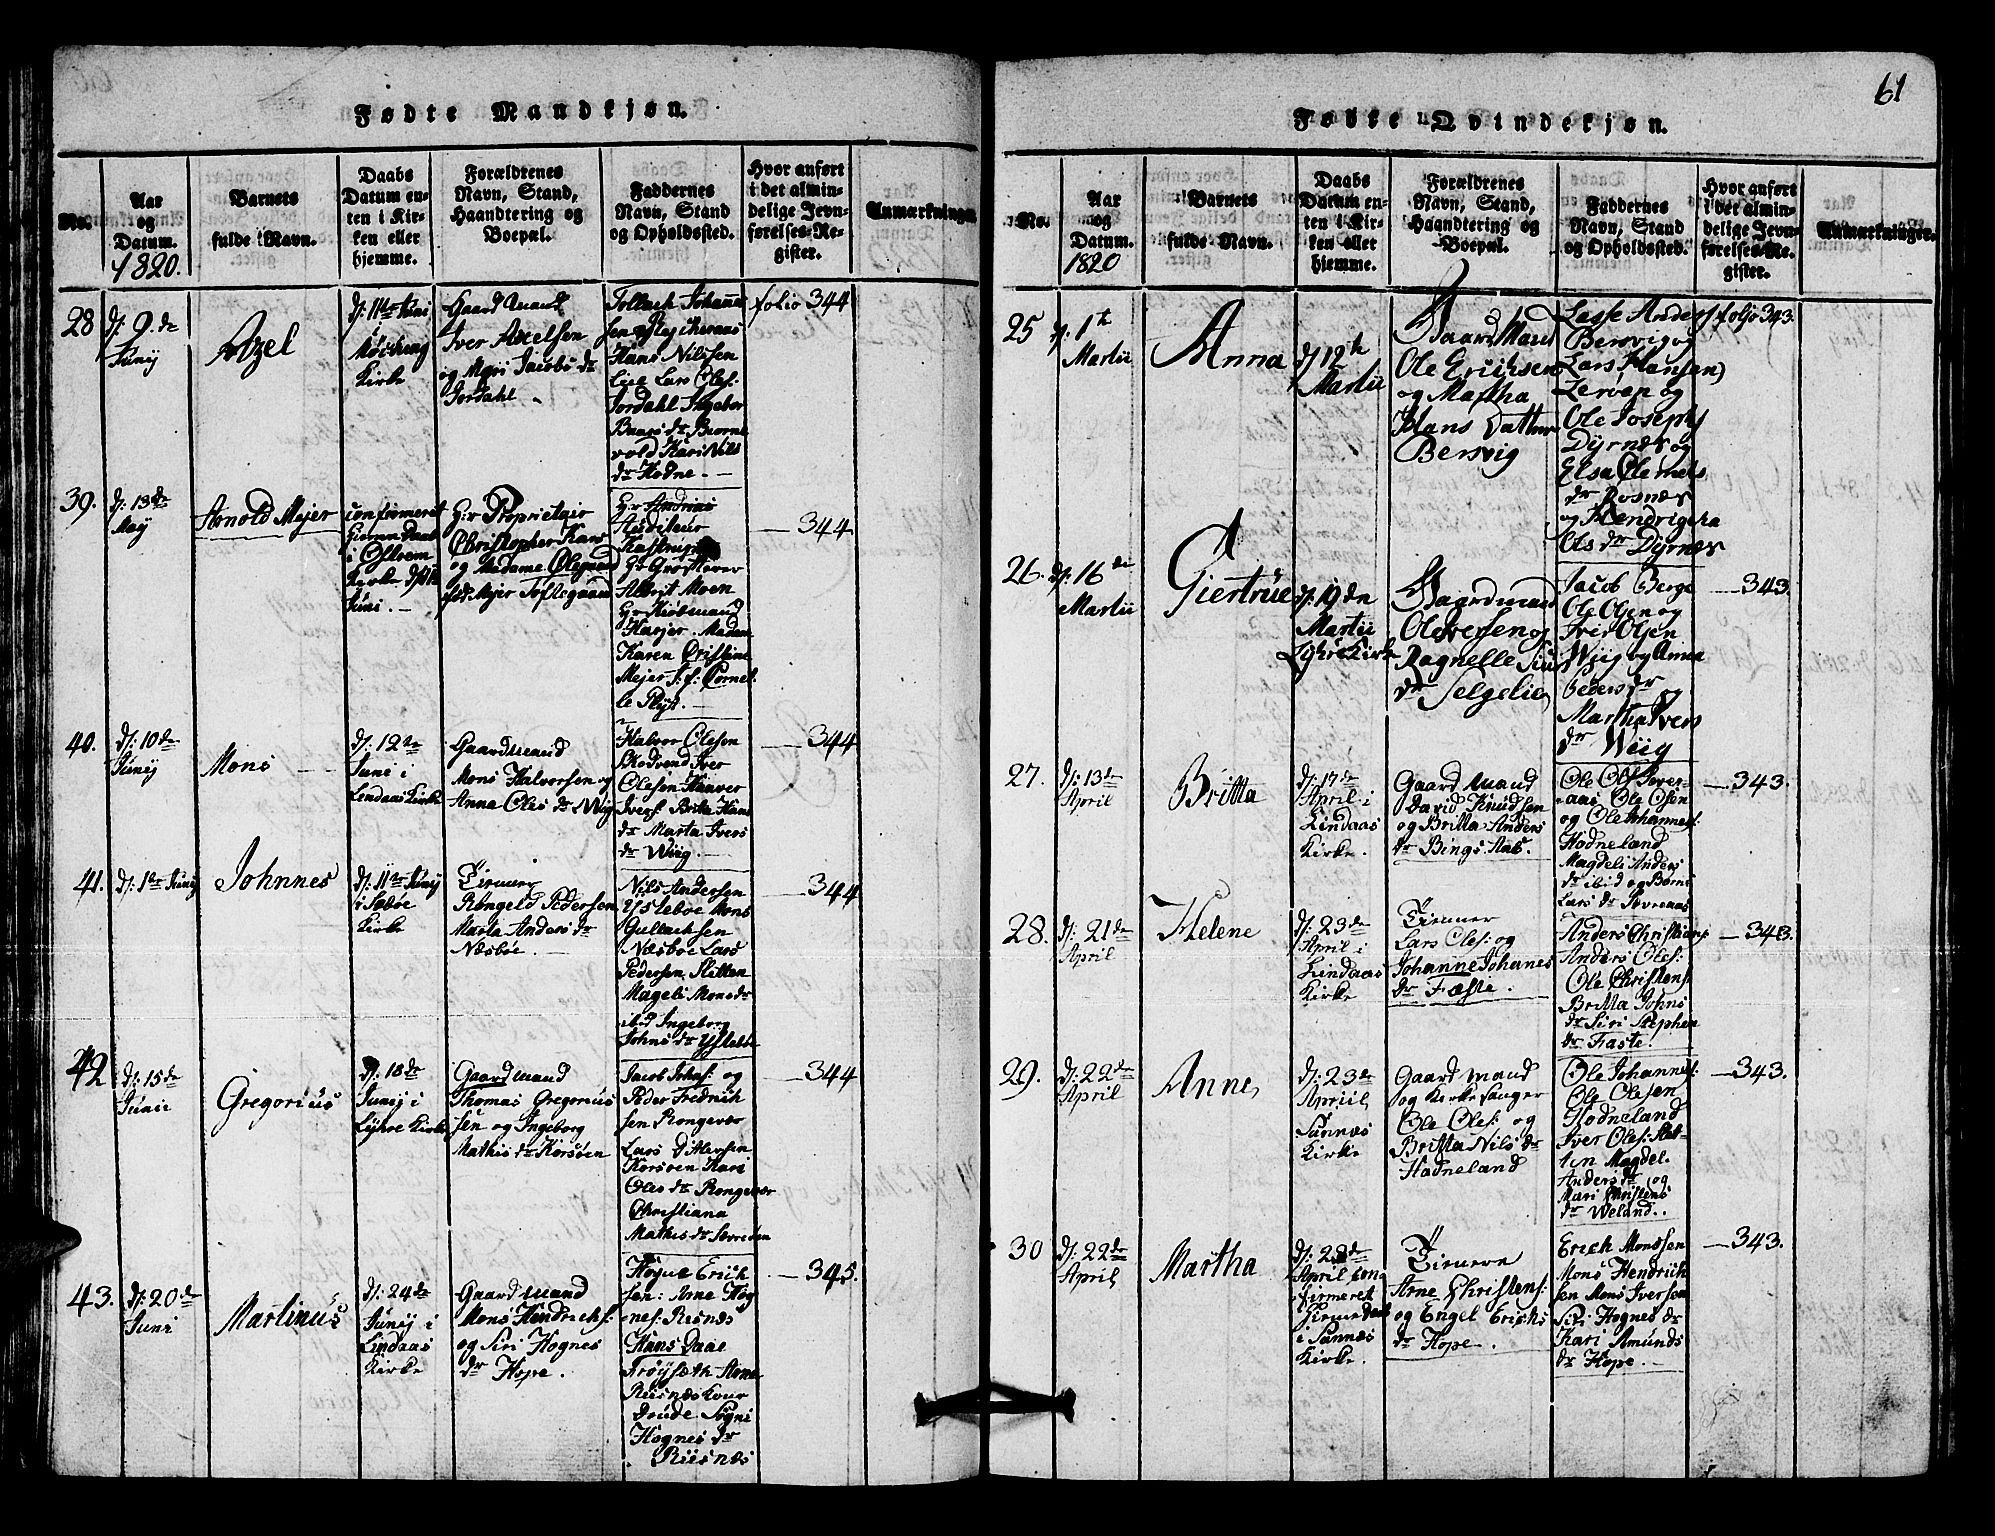 61
Fødte Mandkjøn.
No.
Aar
og
Datum.
1820.
Barnets
fulde Navn.
Daabs
Datum en-
ten i Kir-
ken eller
hjemme.
Forældrenes
Navn, Stand,
Haandtering og
Boepæl.
Faddernes
Navn, Stand
og Opholdssted.
Hvor anført
i det almin-
delige Jevn-
førelses-Re-
gister.
Anmærkninger
28
d: 9. de
Junij
Axel
d: 11te Juni
i
Kirke
Gaardmand
Iver Axelsen
og Mari Jacobs dr
Jordahl
Tollach Johanne
Hans Nilssen
Lie Lars Oles:
Jordahl Ingebor
Baars dr Biørne
vold Kari Nils
dr Hodne.
folio 344
39.
d: 13de
Maij
Arnold Mejer
confirmeret
hiemme Daab
i Ostrem
Kirke
Juni
Hr: Proprietair
Christopher Kars
og Madame Olegaard
fød Mejer Toftegaard
Hr
Albrit Moen
Hr Kiøbmand
Harjer. Madam
Karen Christine
Mejer
344
40.
d: 10de
Junij
Mons
d: 12te
Juni i
Lindaas Kirke
Gaardmand
Mons Halvorsen og
Anna Oles dr Wiig
Halvor Olesen
Skodvend Iver
Olesen Hanver
Britta Hans
dr Marta Ivers
dr Wiig.
344
41.
d: 1te Junij
Johnnes
d: 11te Junij
i Sæbøe
Kirke
Rongeld Pedersen
Marta Anders dr
Næsbøe.
Nils Andersen
Ystebøe Mons
Gullachsen
Næsboe Lars
Pedersen Sletten
Mageli Mons dr
ibid Ingeborg
Johns dr Ystebøe
344
42
d: 15de
Junii
Gregorius
d: 18de
Junij i
Lyhre Kirke
Gaardmand
Thomas Gregorius
sen og Ingeborg
Mathis dr Korsøen
Jacob Johns: og
Peder Fredrich
sen Rongevær
Lars Ditlersen
Korsøen Kari
Oles dr Rongevær
Christiana
Mathis dr
344
43.
d: 20de
Juni
Martinus
d: 24de
Junij i
Lindaas
Kirke
Gaardmand
Mons Hendrichs:
og Siri Hognes
dr Hope.
Hogne Erich
sen: Arne Hog
nes: Riisnæs
Hans Daae
Frøysæth Anne
Riisnæs
Sygni
Hognes dr
Riisnæs
345.
Fødte Qvindekjøn.
No.
Aar
og
Datum.
1820
Barnets
fulde Navn.
Daabs
Datum en-
ten i Kir-
ken eller
hjemme.
Forældrenes
Navn, Stand,
Haandtering og
Boepæl.
Faddernes
Navn, Stand
og Opholdssted.
Hvor anført
i det almin-
delige Jevn-
førelses-Re-
gister.
Anmærkninger.
25
d: 1te
Martii
Anna
d: 12te
Martii
Gaard Mand
Ole Erichsen
og Martha
Hans Datter
Bersvig
Lasse Anders
Bersvig og
Lars Hansen
og
Ole Joseph
Dyrnæs og
Elsa Clemets
dr Rosnæs
og Hendrigcha
Ols dr Dyrnæs
folio 343.
26.
d: 16 de
Martii
Giertrue
d: 19 de
Martii
Lyhre Kirke
Gaardmand
Ole Iversen og
Ragnelle
dr Selgelie
Jacob Berge
Ole Olsen og
Iver Olsen
Wiig og Anna
Peders dr
og
Martha Ivers
dr Wiig
343.
27.
d: 13de
April
Britta
d: 17de
April i
Lindaas
Kirke.
Gaard Mand
David Knudsen
og Britta Anders
dr Bings Aas.
Ole Ols
Ole Olsen
og Ole Johannes:
Hodneland
Magdeli Anders
dr ibid og
Lars dr
343.
28.
d: 21de
April
Helene
d: 23de
April i
Lindaas
Kirke
Lars Oles: og
Johanne Johanes
dr Fæste.
Anders Christians
Anders Oles:
Ole Christens:
Britta Johns
dr Siri Stephen
dr Faste!
343.
29.
d: 22de
April
Anne
d: 23de
Apriil
Sannæs
Kirke
Gaard mand
og Kirke sanger
Ole Oles: og
Britta Nils dr
Hodneland
Ole Johannes:
Ole Olesen
Hodneland
Iver Oles: Slet-
ten Magdel.
Anders dr og
Mari Christens
dr Weland..
343.
30
d: 22de
April
Martha
d: 23de
April con
firmeret
hiemme Daab
i Sannæs
Kirke.
Arne Christens:
og Engel Erichs
dr Hope.
Erich Monssen
Mons Hendrich
sen Mons Iversen
Siri Hognes dr
Kari Amunds
dr Hope.
343.